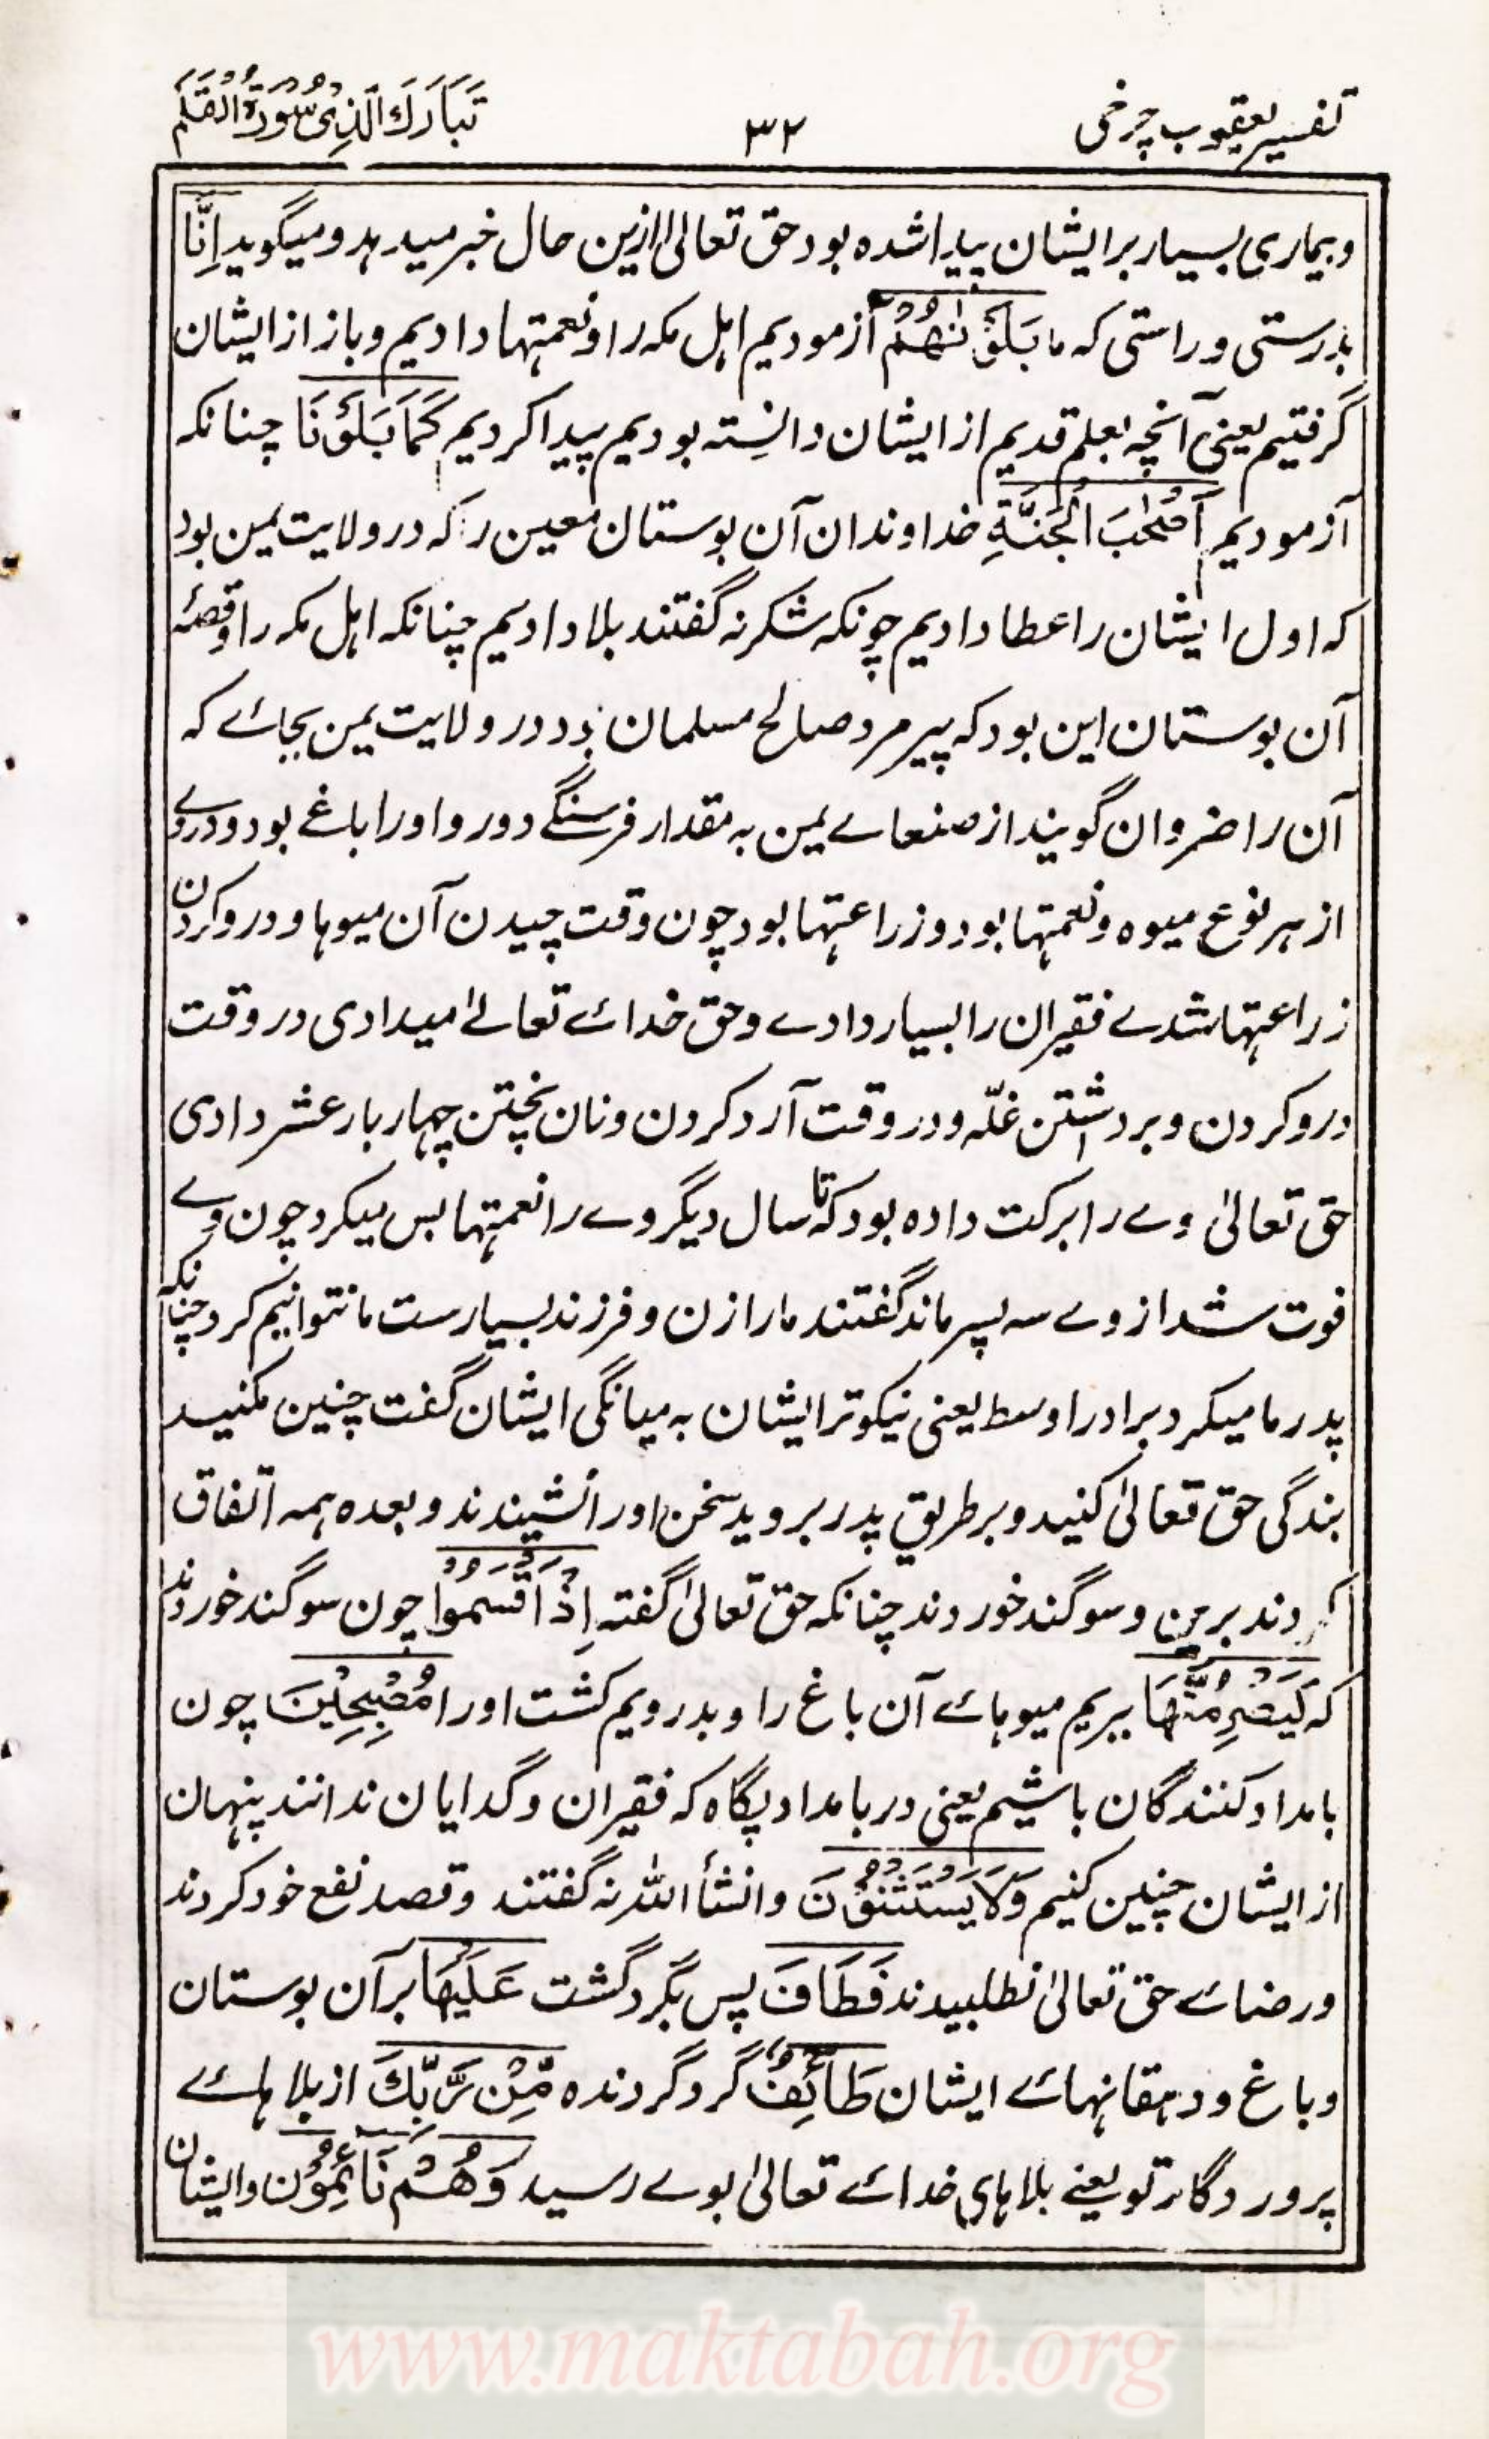 تفسیر یعقوب چرخی
۳۲
تَبَارَكَ الَّذِیْ سُوْرَةُ الْقَلَم
و بیماری بسیار بر ایشان پیدا شده بود حق تعالیٰ ازین حال خبر میدہد و میگوید اِنَّا
بدرستی و راستی کہ ما بَلَوْنٰهُمْ آزمودیم اہل مکہ را و نعمتہا دادیم و باز از ایشان
گرفتیم یعنی آنچہ بعلم قدیم از ایشان دانستہ بودیم پیدا کردیم کَمَا بَلَوْنَا چنانکہ
آزمودیم اَصْحٰبَ الْجَنَّةِ خداوندان آن بوستان معین را کہ در ولایت یمن بود
کہ اول ایشان را عطا دادیم چونکہ شکر نہ گفتند بلا دادیم چنانکہ اہل مکہ را و قصۂ
آن بوستان این بود کہ پیر مرد صالح مسلمان بود در ولایت یمن بجائے کہ
آن را ضروان گویند از صنعاے یمن بہ مقدار فرسنگے دور و او را باغے بود و دروے
از ہر نوع میوہ و نعمتہا بود و زراعتہا بود چون وقت چیدن آن میوہا و درو کردن
زراعتہا شدے فقیران را بسیار دادے و حق خدائے تعالےٰ میدادی در وقت
درو کردن و برداشتن غلّہ و در وقت آرد کردن و نان پختن چہار بار عشر دادی
حق تعالیٰ وے را برکت دادہ بود کہ تا سال دیگر وے را نعمتہا بس میکرد چون وے
فوت شد از وے سہ پسر ماند گفتند ما را زن و فرزند بسیارست ما نتوانیم کرد چنانکہ
پدر ما میکرد برادر اوسط یعنی نیکوتر ایشان بہ میانگی ایشان گفت چنین مکنید
بندگی حق تعالیٰ کنید و بر طریق پدر بروید سخن او را نشیندند و بعدہ ہمہ اتفاق
کردند برین و سوگند خوردند چنانکہ حق تعالیٰ گفتہ اِذْ اَقْسَمُوْا چون سوگند خوردند
کہ لَیَصْرِمُنَّهَا ببریم میوہائے آن باغ را و بدرویم کشت او را مُصْبِحِیْنَ چون
بامداد کنندگان باشیم یعنی در بامداد پگاہ کہ فقیران و گدایان ندانند پنہان
از ایشان چنین کنیم وَلَا یَسْتَثْنُوْنَ و انشأ اللہ نہ گفتند و قصد نفع خود کردند
و رضائے حق تعالیٰ نطلبیدند فَطَافَ پس بگرد گشت عَلَیْهَا بر آن بوستان
و باغ و دہقانہائے ایشان طَآئِفٌ گرد گردندہ مِّنْ رَّبِّكَ از بلاہائے
پروردگار تو یعنے بلاہای خدائے تعالیٰ بوے رسید وَهُمْ نَآئِمُوْن و ایشان
www.maktabah.org